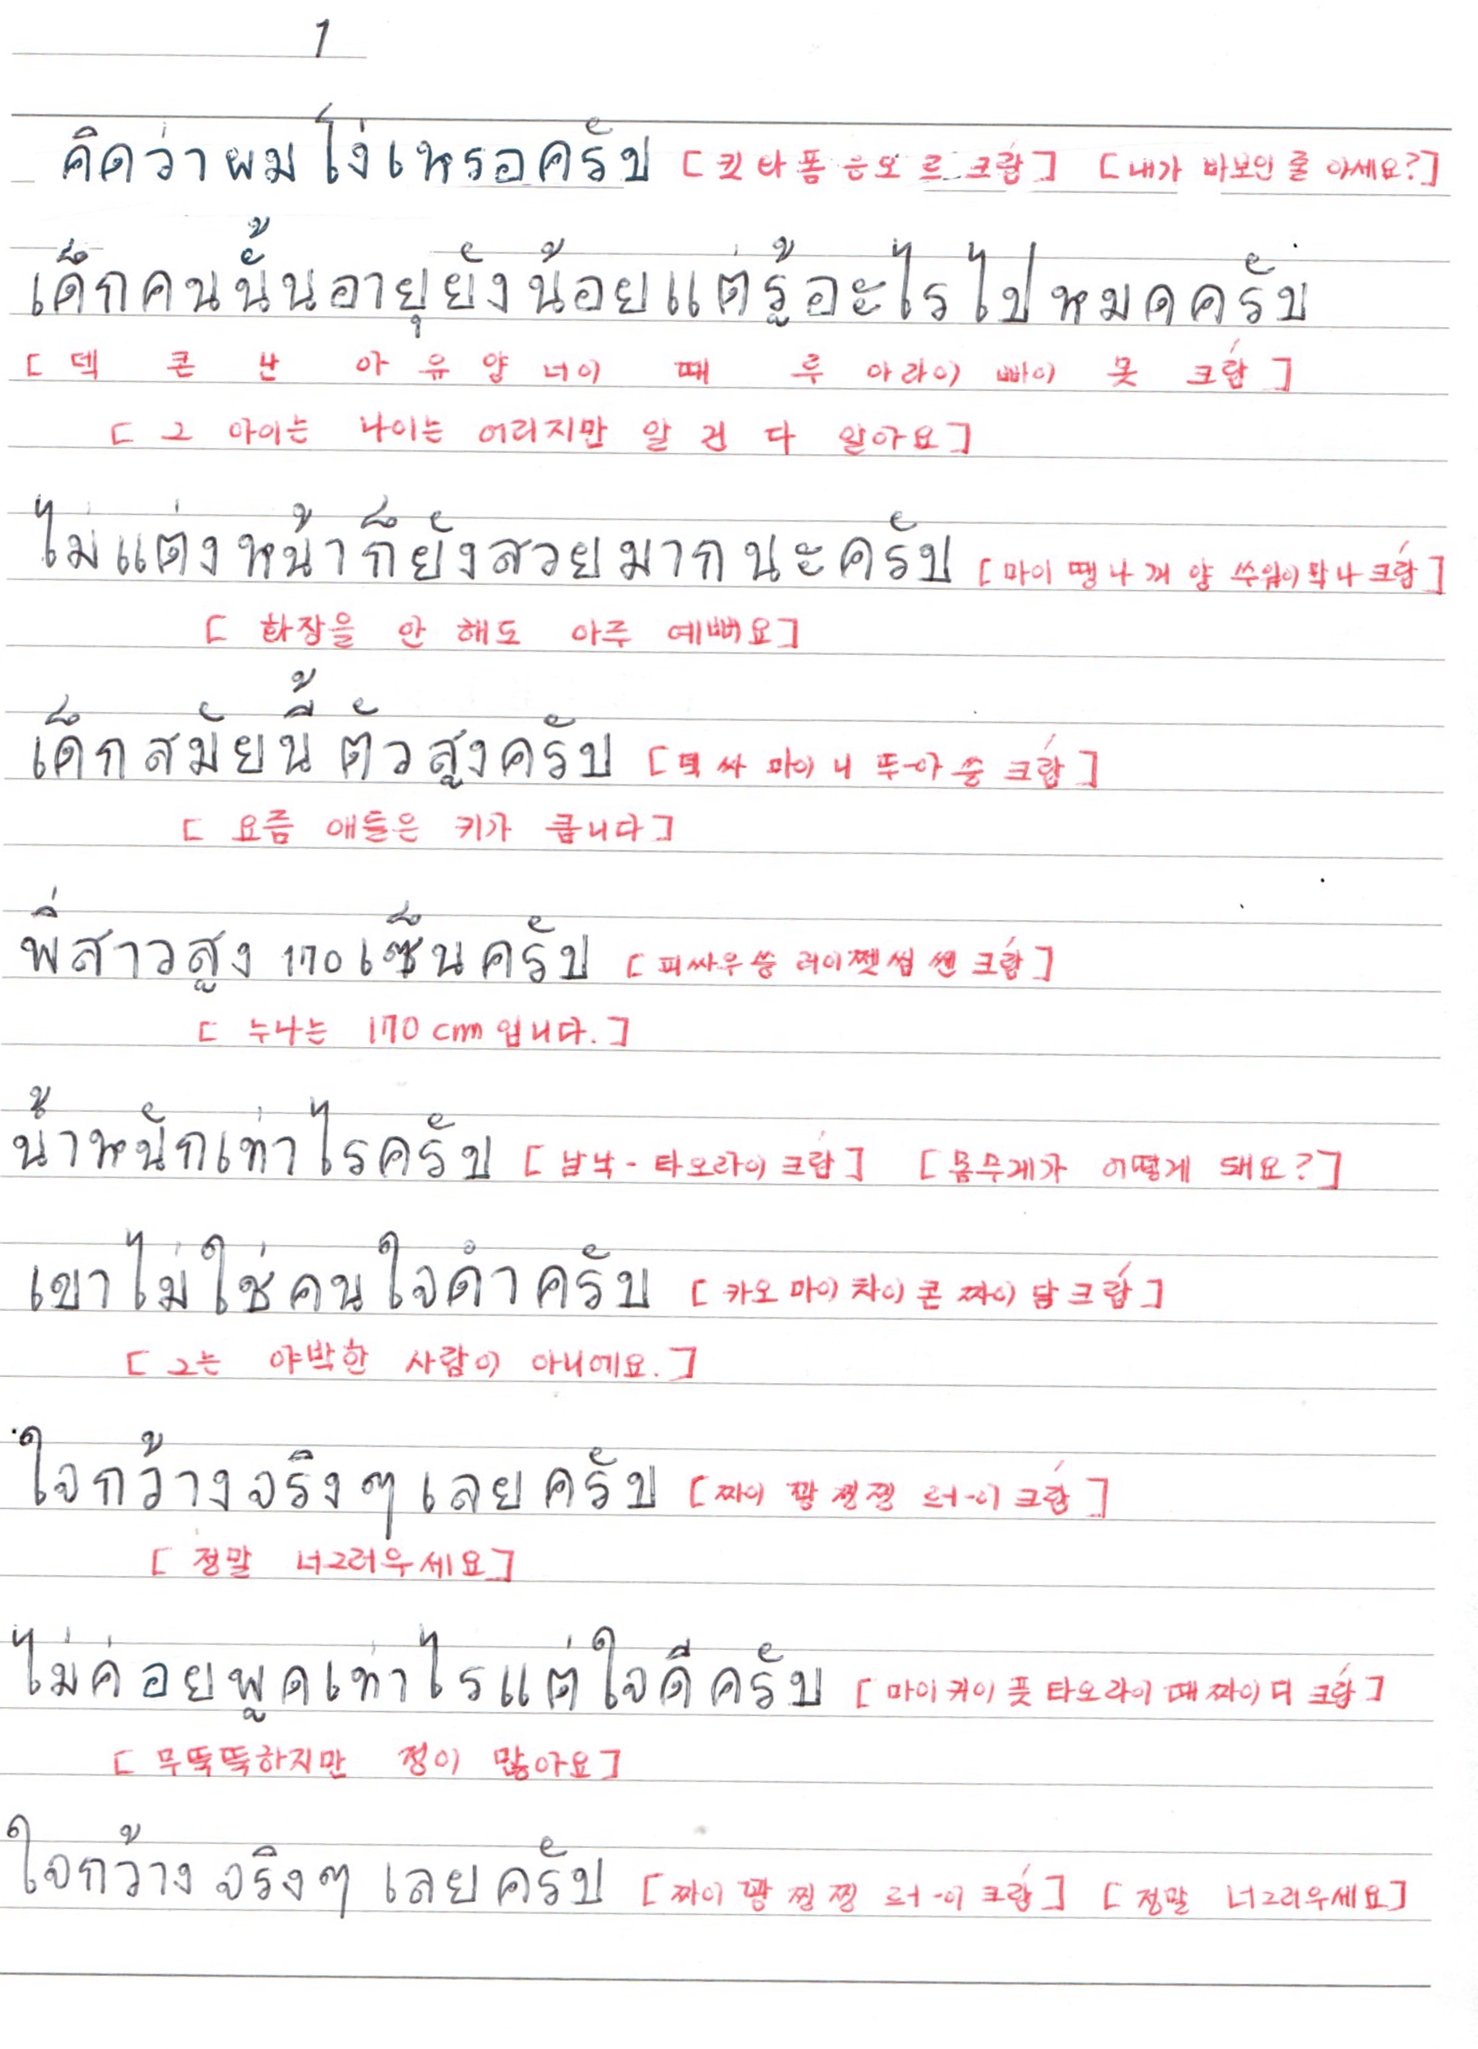 1
คิดว่าผมโง่เหรอครับ [킷 와 폼 응오 르 크랍] [내가 바보인 줄 아세요?]
เด็กคนนั้นอายุยังน้อยแต่รู้อะไรไปหมดครับ
[덱 콘 난 아 유 양 너이 때 루 아라이 빠이 못 크랍]
[그 아이는 나이는 어리지만 알 건 다 알아요]
ไม่แต่งหน้าก็ยังสวยมากนะครับ [마이 땡 나 꺼 양 쑤암이 막 나 크랍]
[화장을 안 해도 아주 예뻐요]
เด็กสมัยนี้ตัวสูงครับ [덱 싸 마이 니 뚜-아 쑹 크랍]
[요즘 애들은 키가 큽니다]
พี่สาวสูง 170 เซ็นครับ [피싸우 쑹 러이쩻씹 쎈 크랍]
[누나는 170 cm 입니다.]
น้ำหนักเท่าไรครับ [남낙 - 타오라이 크랍] [몸무게가 어떻게 돼요?]
เขาไม่ใช่คนใจดำครับ [카오 마이 차이 콘 짜이 담 크랍]
[그는 야박한 사람이 아니에요.]
ใจกว้างจริงๆเลยครับ [짜이 꽝 찡찡 러-이 크랍]
[정말 너그러우세요]
ไม่ค่อยพูดเท่าไรแต่ใจดีครับ [마이 커이 풋 타오라이 때 짜이 디 크랍]
[무뚝뚝하지만 정이 많아요]
ใจกว้าง จริงๆ เลยครับ [짜이 꽝 찡찡 러-이 크랍] [정말 너그러우세요]